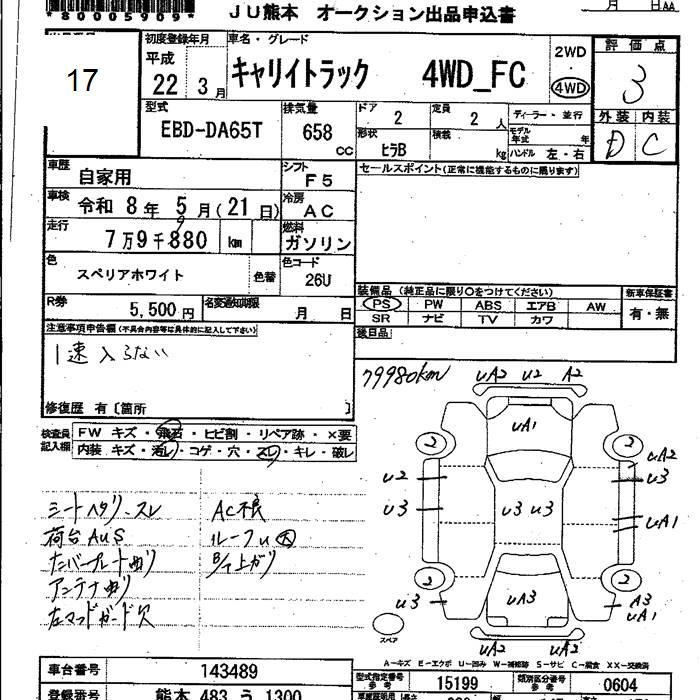 *80005909*
JU熊本 オークション出品申込書
月 日AA
17
初度登録年月
平成
22 3月
車名・グレード
キャリイトラック 4WD_FC
2WD
・
4WD
評価点
3
外装 内装
D C
型式
EBD-DA65T
排気量
658
CC
ドア
2
定員
2人
ディーラー・並行
形状
ヒラB
積載
kg
モデル年式 年
ハンドル 左・右
車歴
自家用
シフト
F5
セールスポイント(正常に機能するものに限ります)
車検
令和 8年 5月(21日)
冷房
AC
走行
7万9千880 km
9
燃料
ガソリン
色
スペリアホワイト
色替
色コード
26U
装備品(純正品に限り○をつけてください)
PS PW ABS エアB AW
SR ナビ TV カワ
新車保証書
有・無
R券
5,500円
名変通知期限
月 日
後日品
注意事項申告欄(不具合内容等は具体的に記入して下さい)
1速入らない
修復歴 有〔箇所 〕
79980km
検査員記入欄
FW キズ・飛石・ヒビ割・リペア跡・×要
内装 キズ・汚レ・コゲ・穴・スレ・キレ・破レ
シートヘタリ.スレ
荷台AUS
ナンバープレート曲り
アンテナ曲り
左マッドガード欠
AC不良
ルーフU大
B/下上ガリ
UA2 U2 A2
UA1
2 2
UA2
U2
U3
U3
U3 U3
UA1
2 2
U3
UA3
A3
UA1
UA2 UA2
スペア
A-キズ E-エクボ U-凹み W-補修跡 S-サビ C-腐食 XX-交換済
車台番号
143489
型式指定番号
参考
15199
類別区分番号
参考
0604
登録番号
熊本 483 う 1300